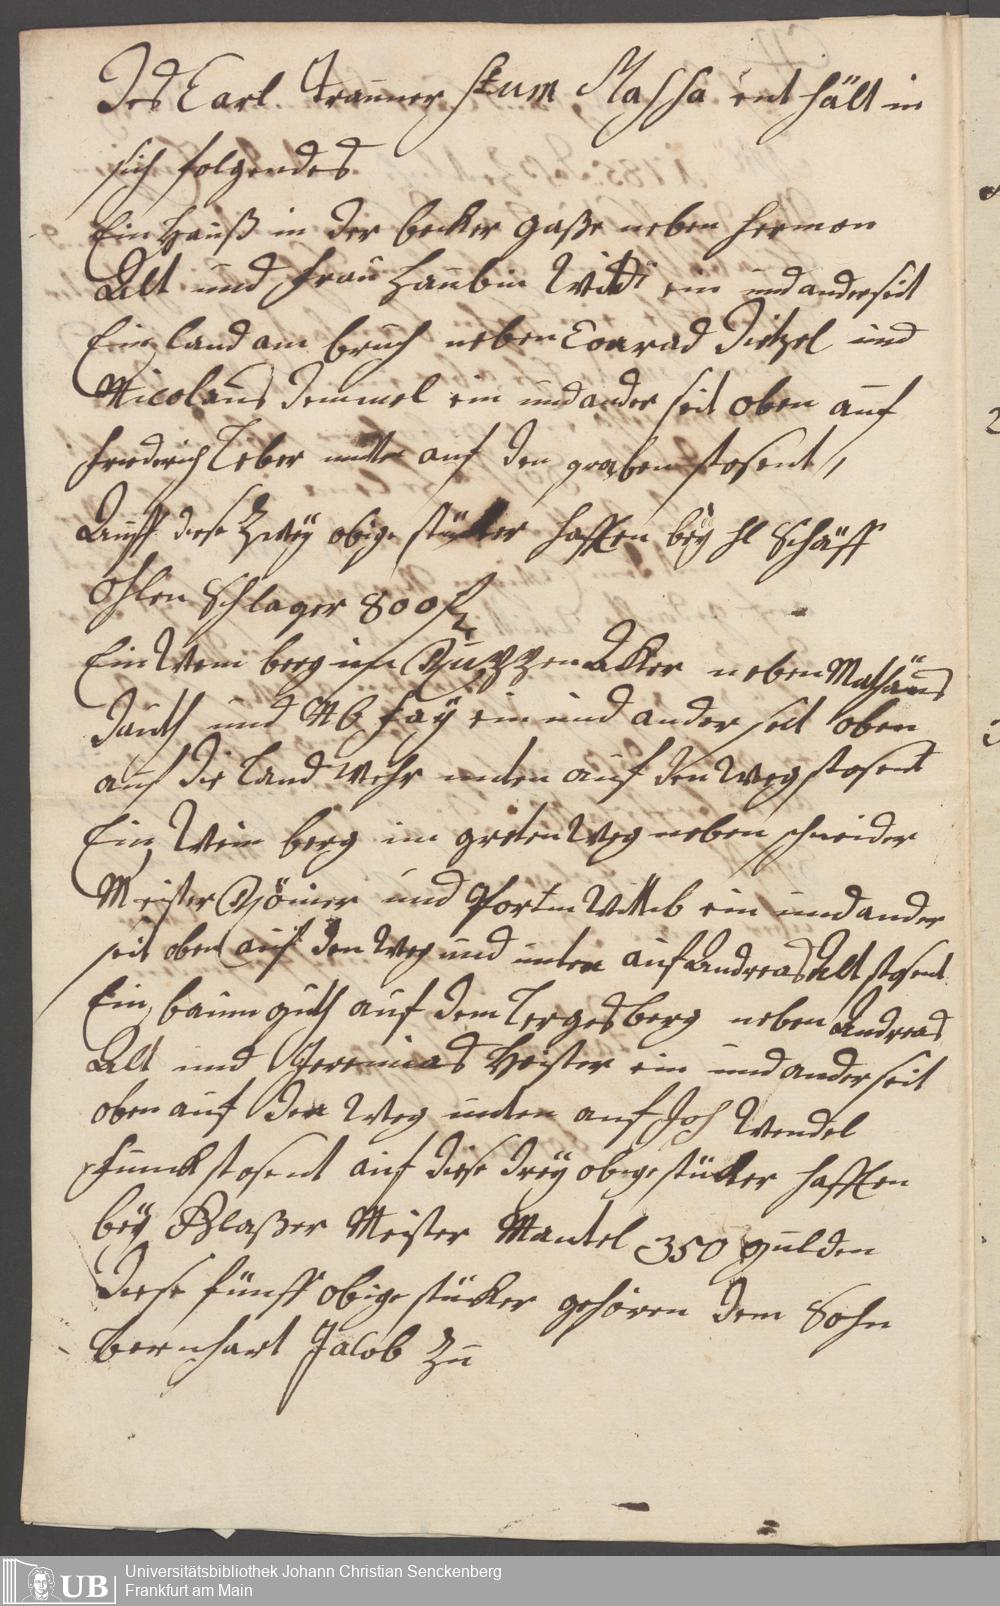 Des Carl Trauner seum Massa enthält in
sich folgendes
Ein Hauß in der becker gaße neben Hermon
Alt und frau Haubin Witb ein und anderseit
Ein land am bruch neben Conrad Dietzel und
Nicolaus Demmel ein und ander seit oben auf
friederich Leber unten auf den graben stosent,
Auff diese Zweÿ obige stücker hafften beÿ H Schäff
Ohlen Schlager 800 f
Ein Wein berg im acker neben Mathäus
Dauth und Faÿ ein und ander seit oben
auf die landwehr unten auf den Weg stosent
Ein Wein berg im Weg neben schneider
Meister und Wittib ein und ander
seit oben auf den Weg und unten auf Andreas Alt stosent
Ein baum guth auf dem berg neben Andreas
Alt und Jeremias Heister ein und anderseit
oben auf den Weg unten auf Joh Wendel
Funck stosent auf diese dreÿ obige stücker hafften
beÿ Glaßer Meister Mantel 350 gulden
Diese fünff obige stücker gehören dem Sohn
bernhart Jacob Zu
UB
Universitätsbibliothek Johann Christian Senckenberg
Frankfurt am Main